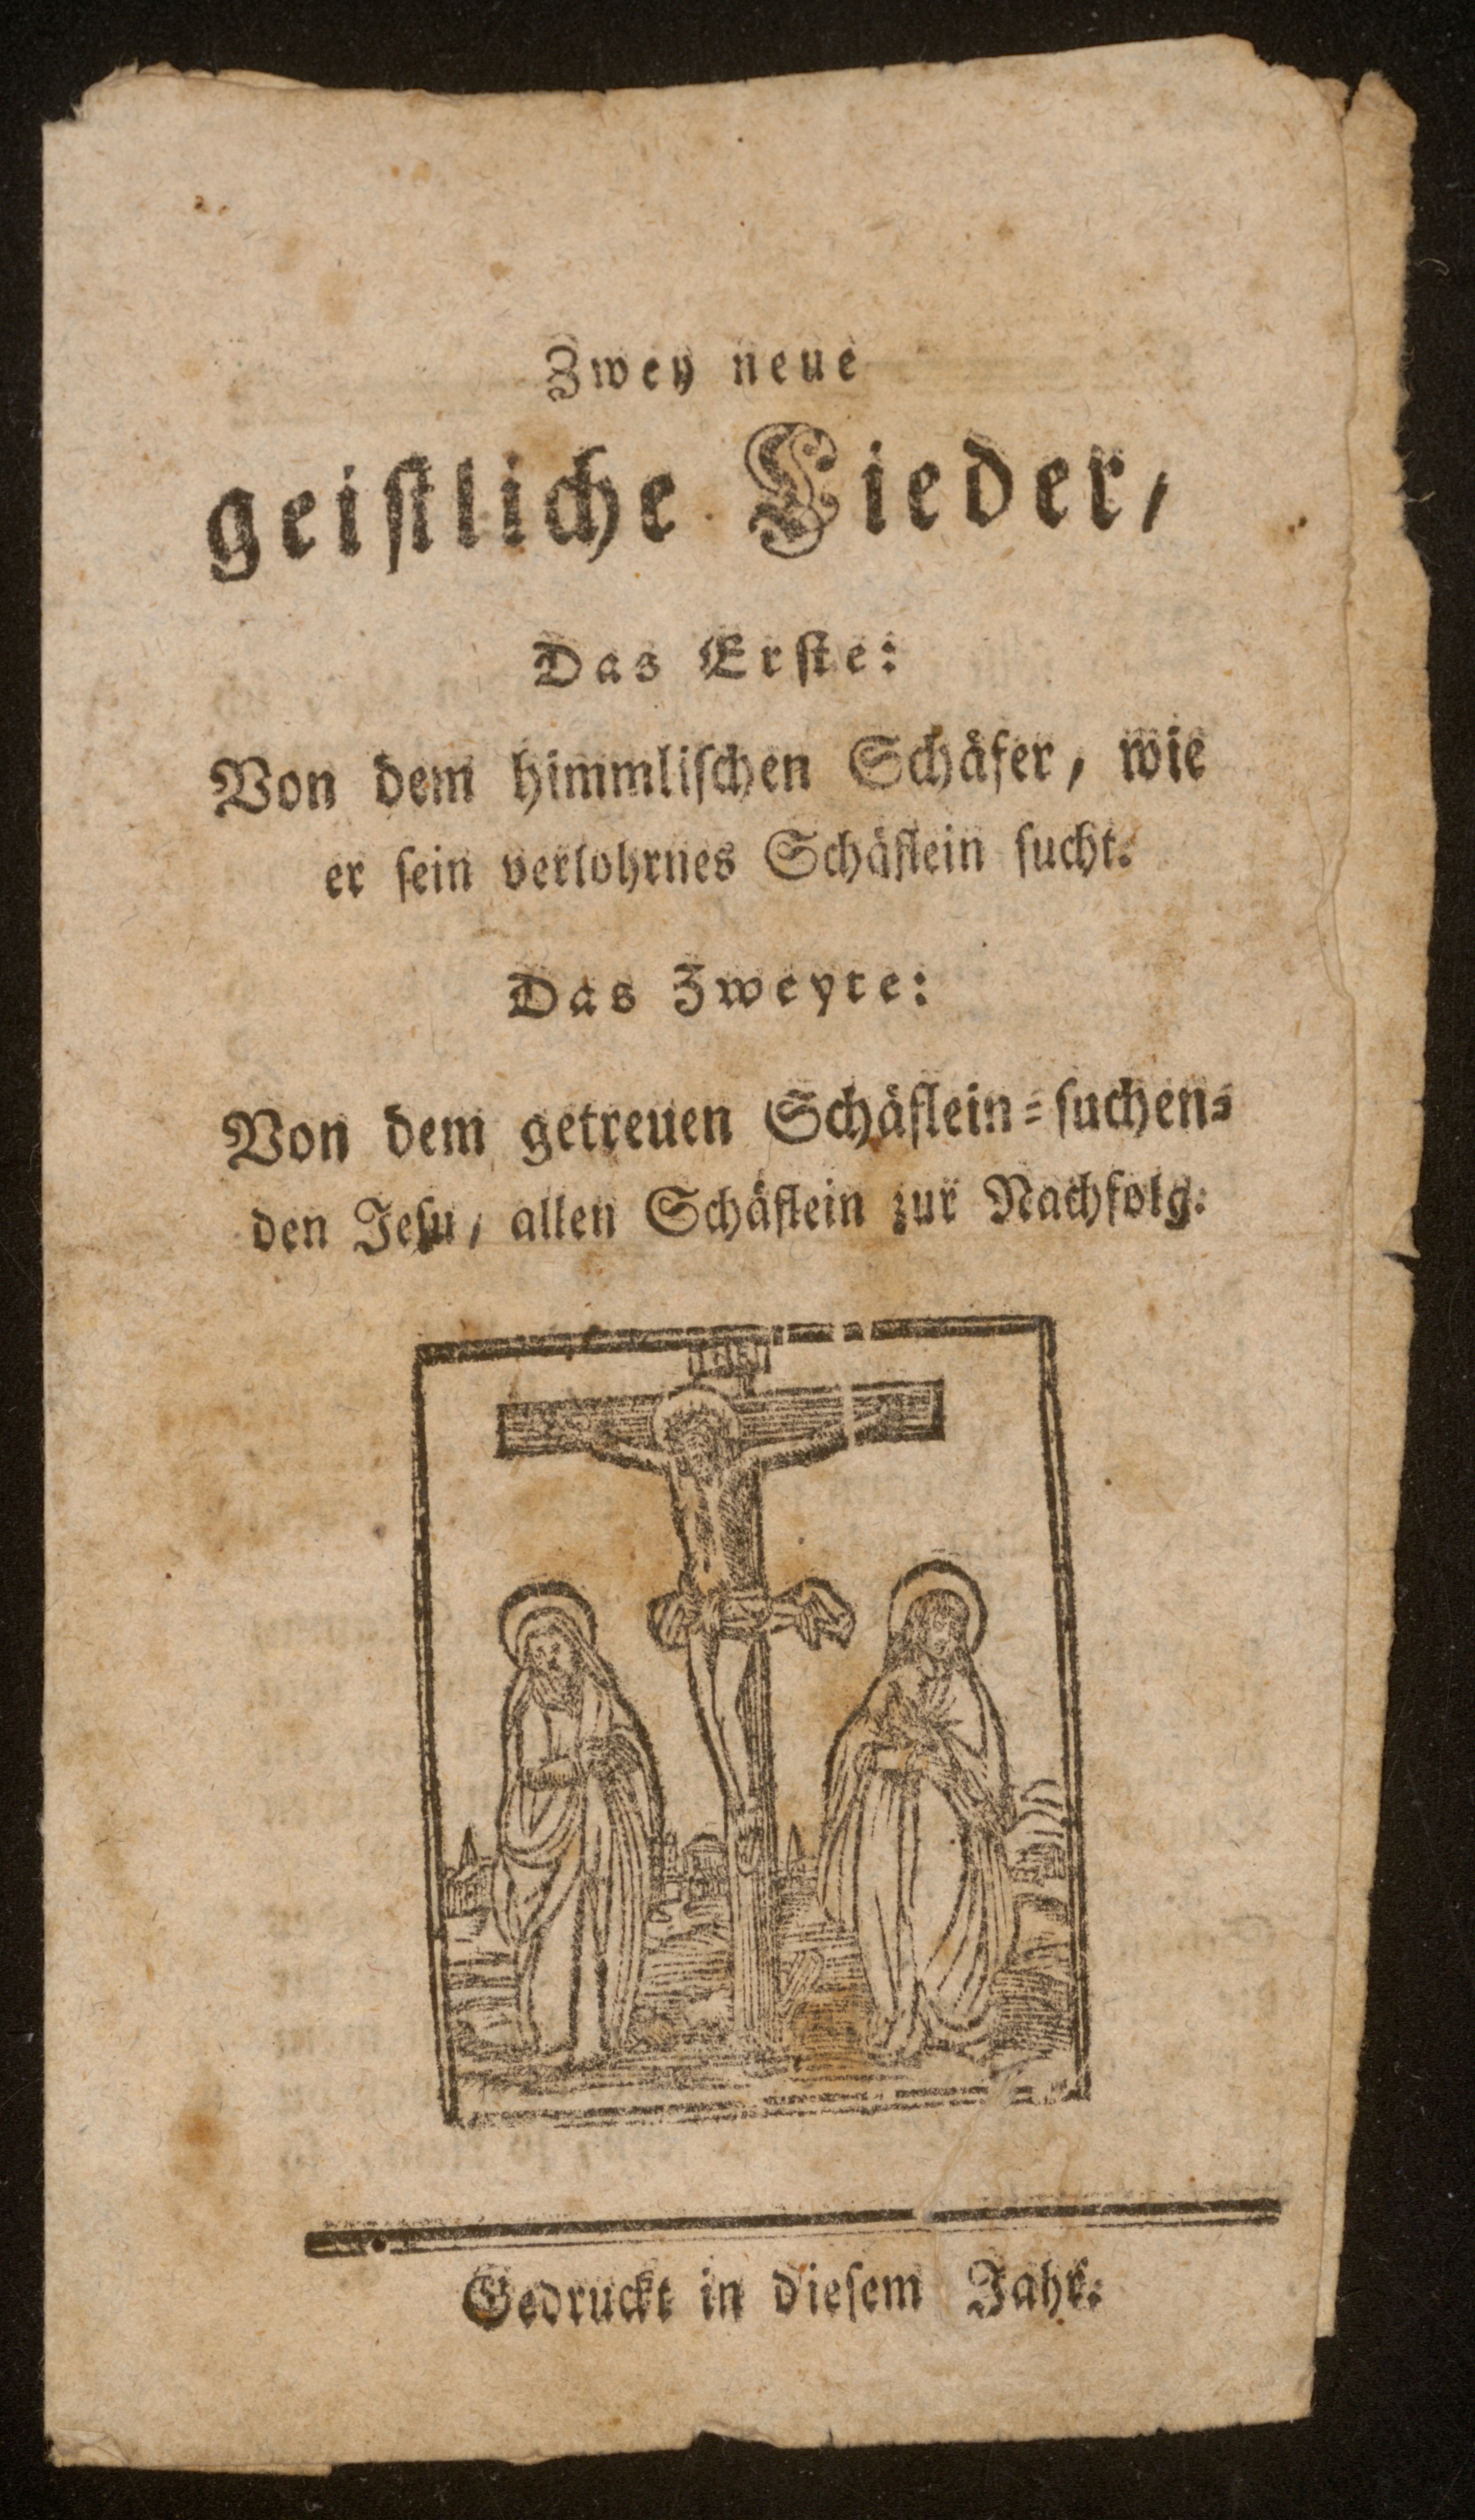 Zwey neue
geistliche Lieder,
Das Erste:
Von dem himmlischen Schäfer, wie
er sein verlohrnes Schäflein sucht.
Das Zweyte:
Von dem getreuen Schäflein-suchen-
den Jesu, allen Schäflein zur Nachfolg.
INRI
Gedruckt in diesem Jahr.